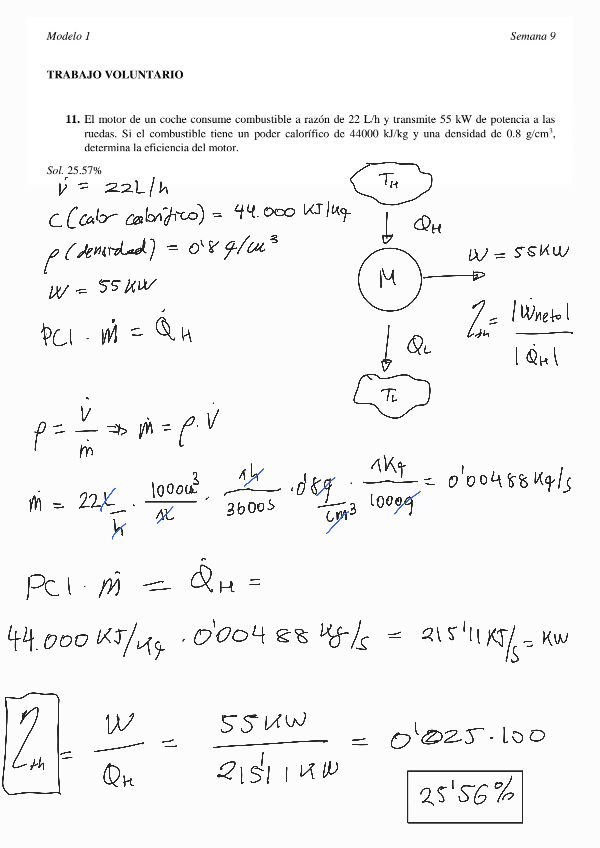 Modelo 1 Semana 9
TRABAJO VOLUNTARIO
11. El motor de un coche consume combustible a razón de 22 L/h y transmite 55 kW de potencia a las
ruedas. Si el combustible tiene un poder calorífico de 44000 kJ/kg y una densidad de 0.8 g/cm³,
determina la eficiencia del motor.
Sol. 25.57%
V̇ = 22L/h
C (calor calorífico) = 44.000 KJ/kg
ρ (densidad) = 0'8 g/cm³
W = 55 KW
PCI · ṁ = Q̇H
TH
QH
M
W = 55KW
QL
TL
ηth = |Ẇneto| / |Q̇H|
ρ = V̇/ṁ ⇒ ṁ = ρ · V̇
ṁ = 22 L/h · 1000cm³/1L · 1h/3600s · 0'8g/cm³ · 1Kg/1000g = 0'00488 Kg/s
PCI · ṁ = Q̇H =
44.000 KJ/Kg · 0'00488 Kg/s = 215'11 KJ/s = KW
ηth = W/QH = 55KW/215'11 KW = 0'025·100
25'56%